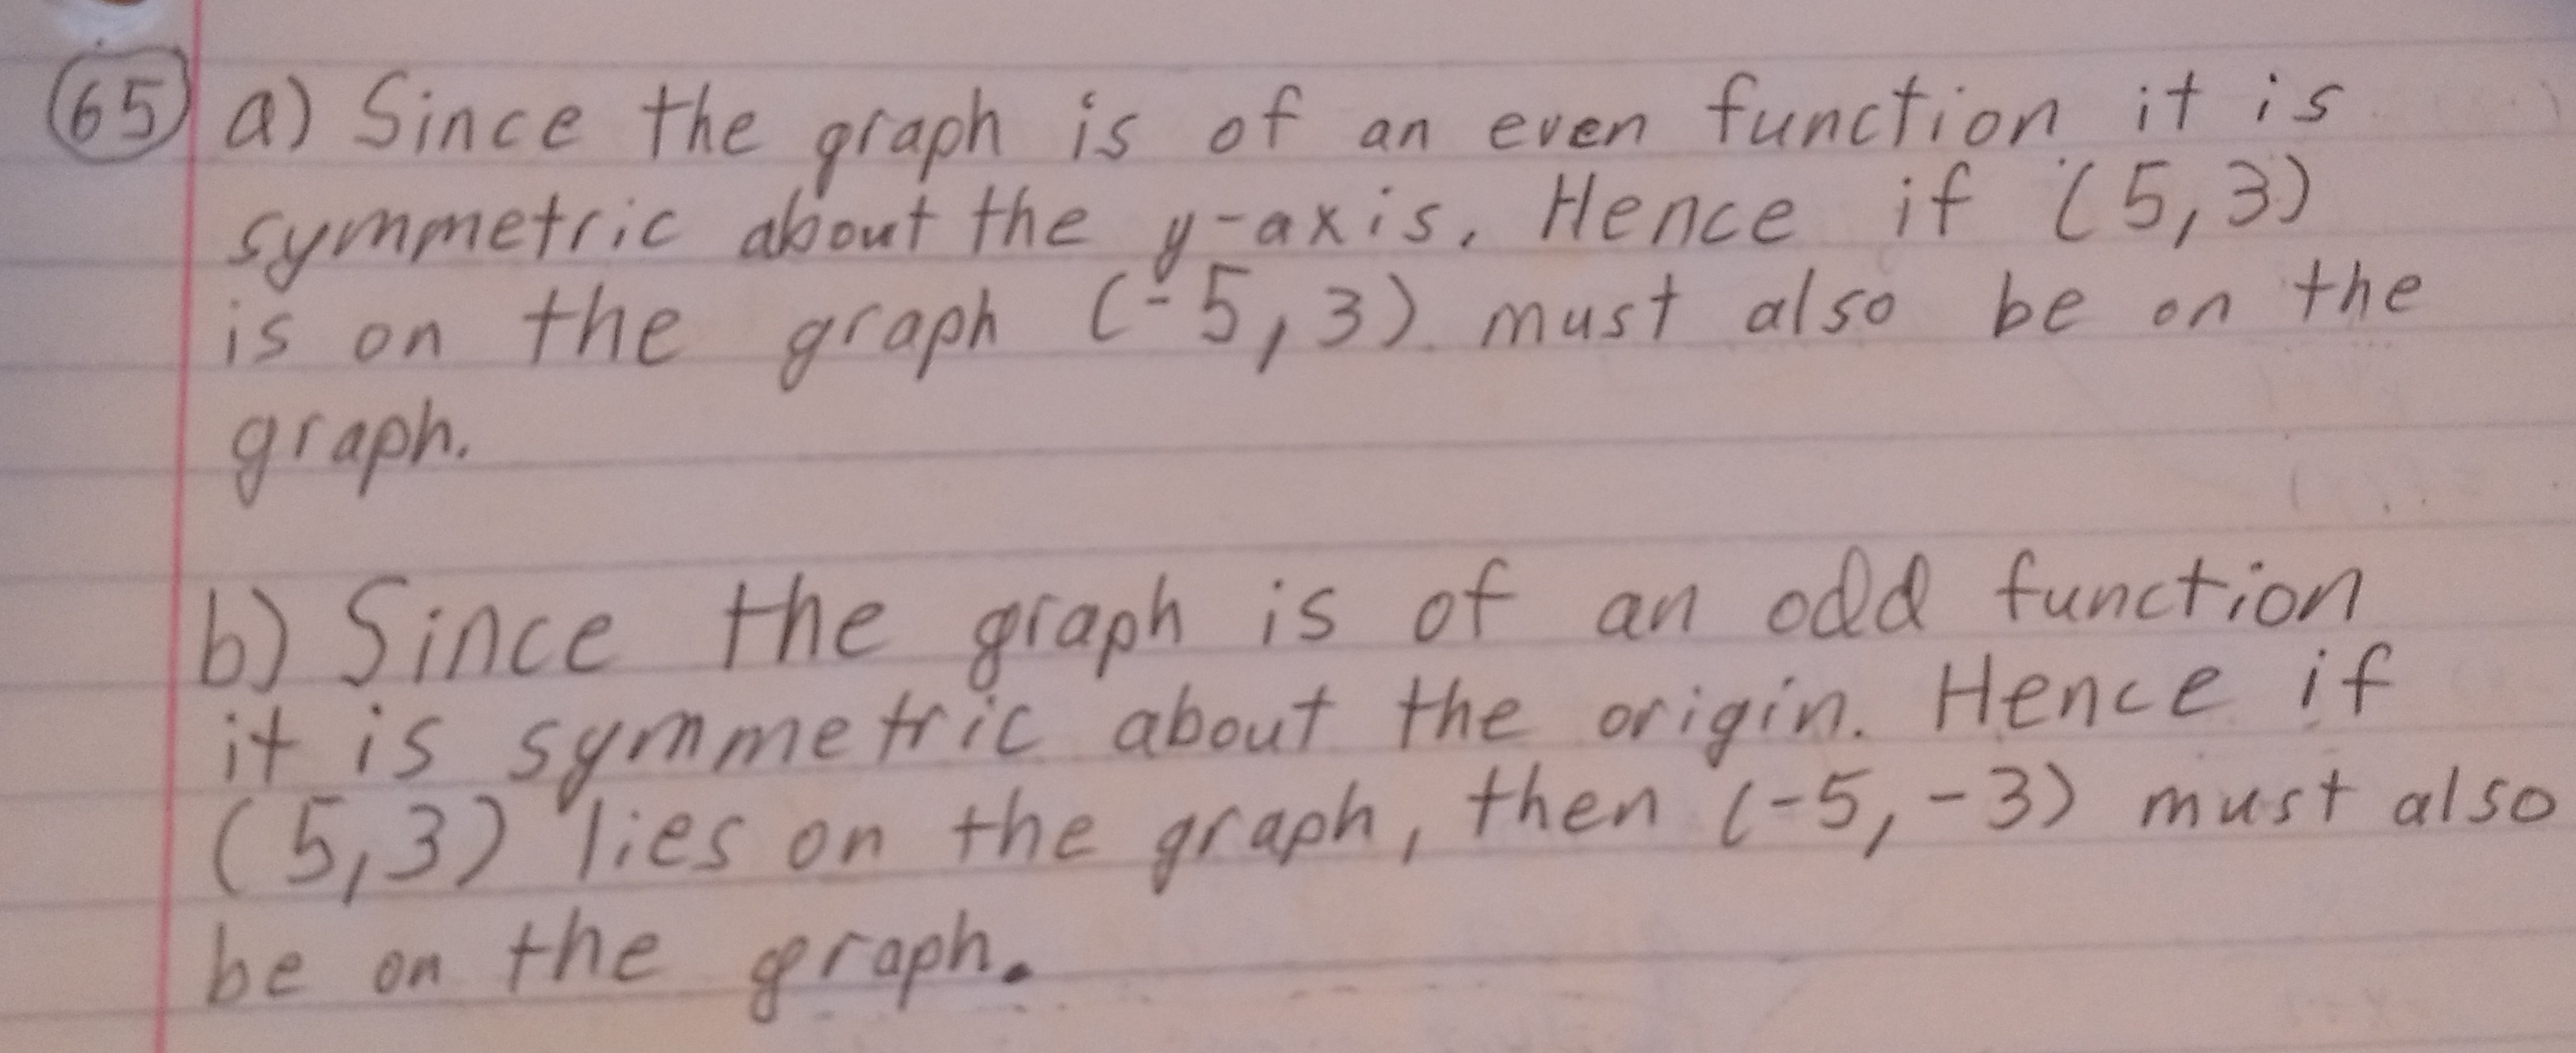 65 a) Since the graph is of an even function it is
symmetric about the y-axis. Hence if (5,3)
is on the graph (-5,3) must also be on the
graph.
b) Since the graph is of an odd function
it is symmetric about the origin. Hence if
(5,3) lies on the graph, then (-5,-3) must also
be on the graph.